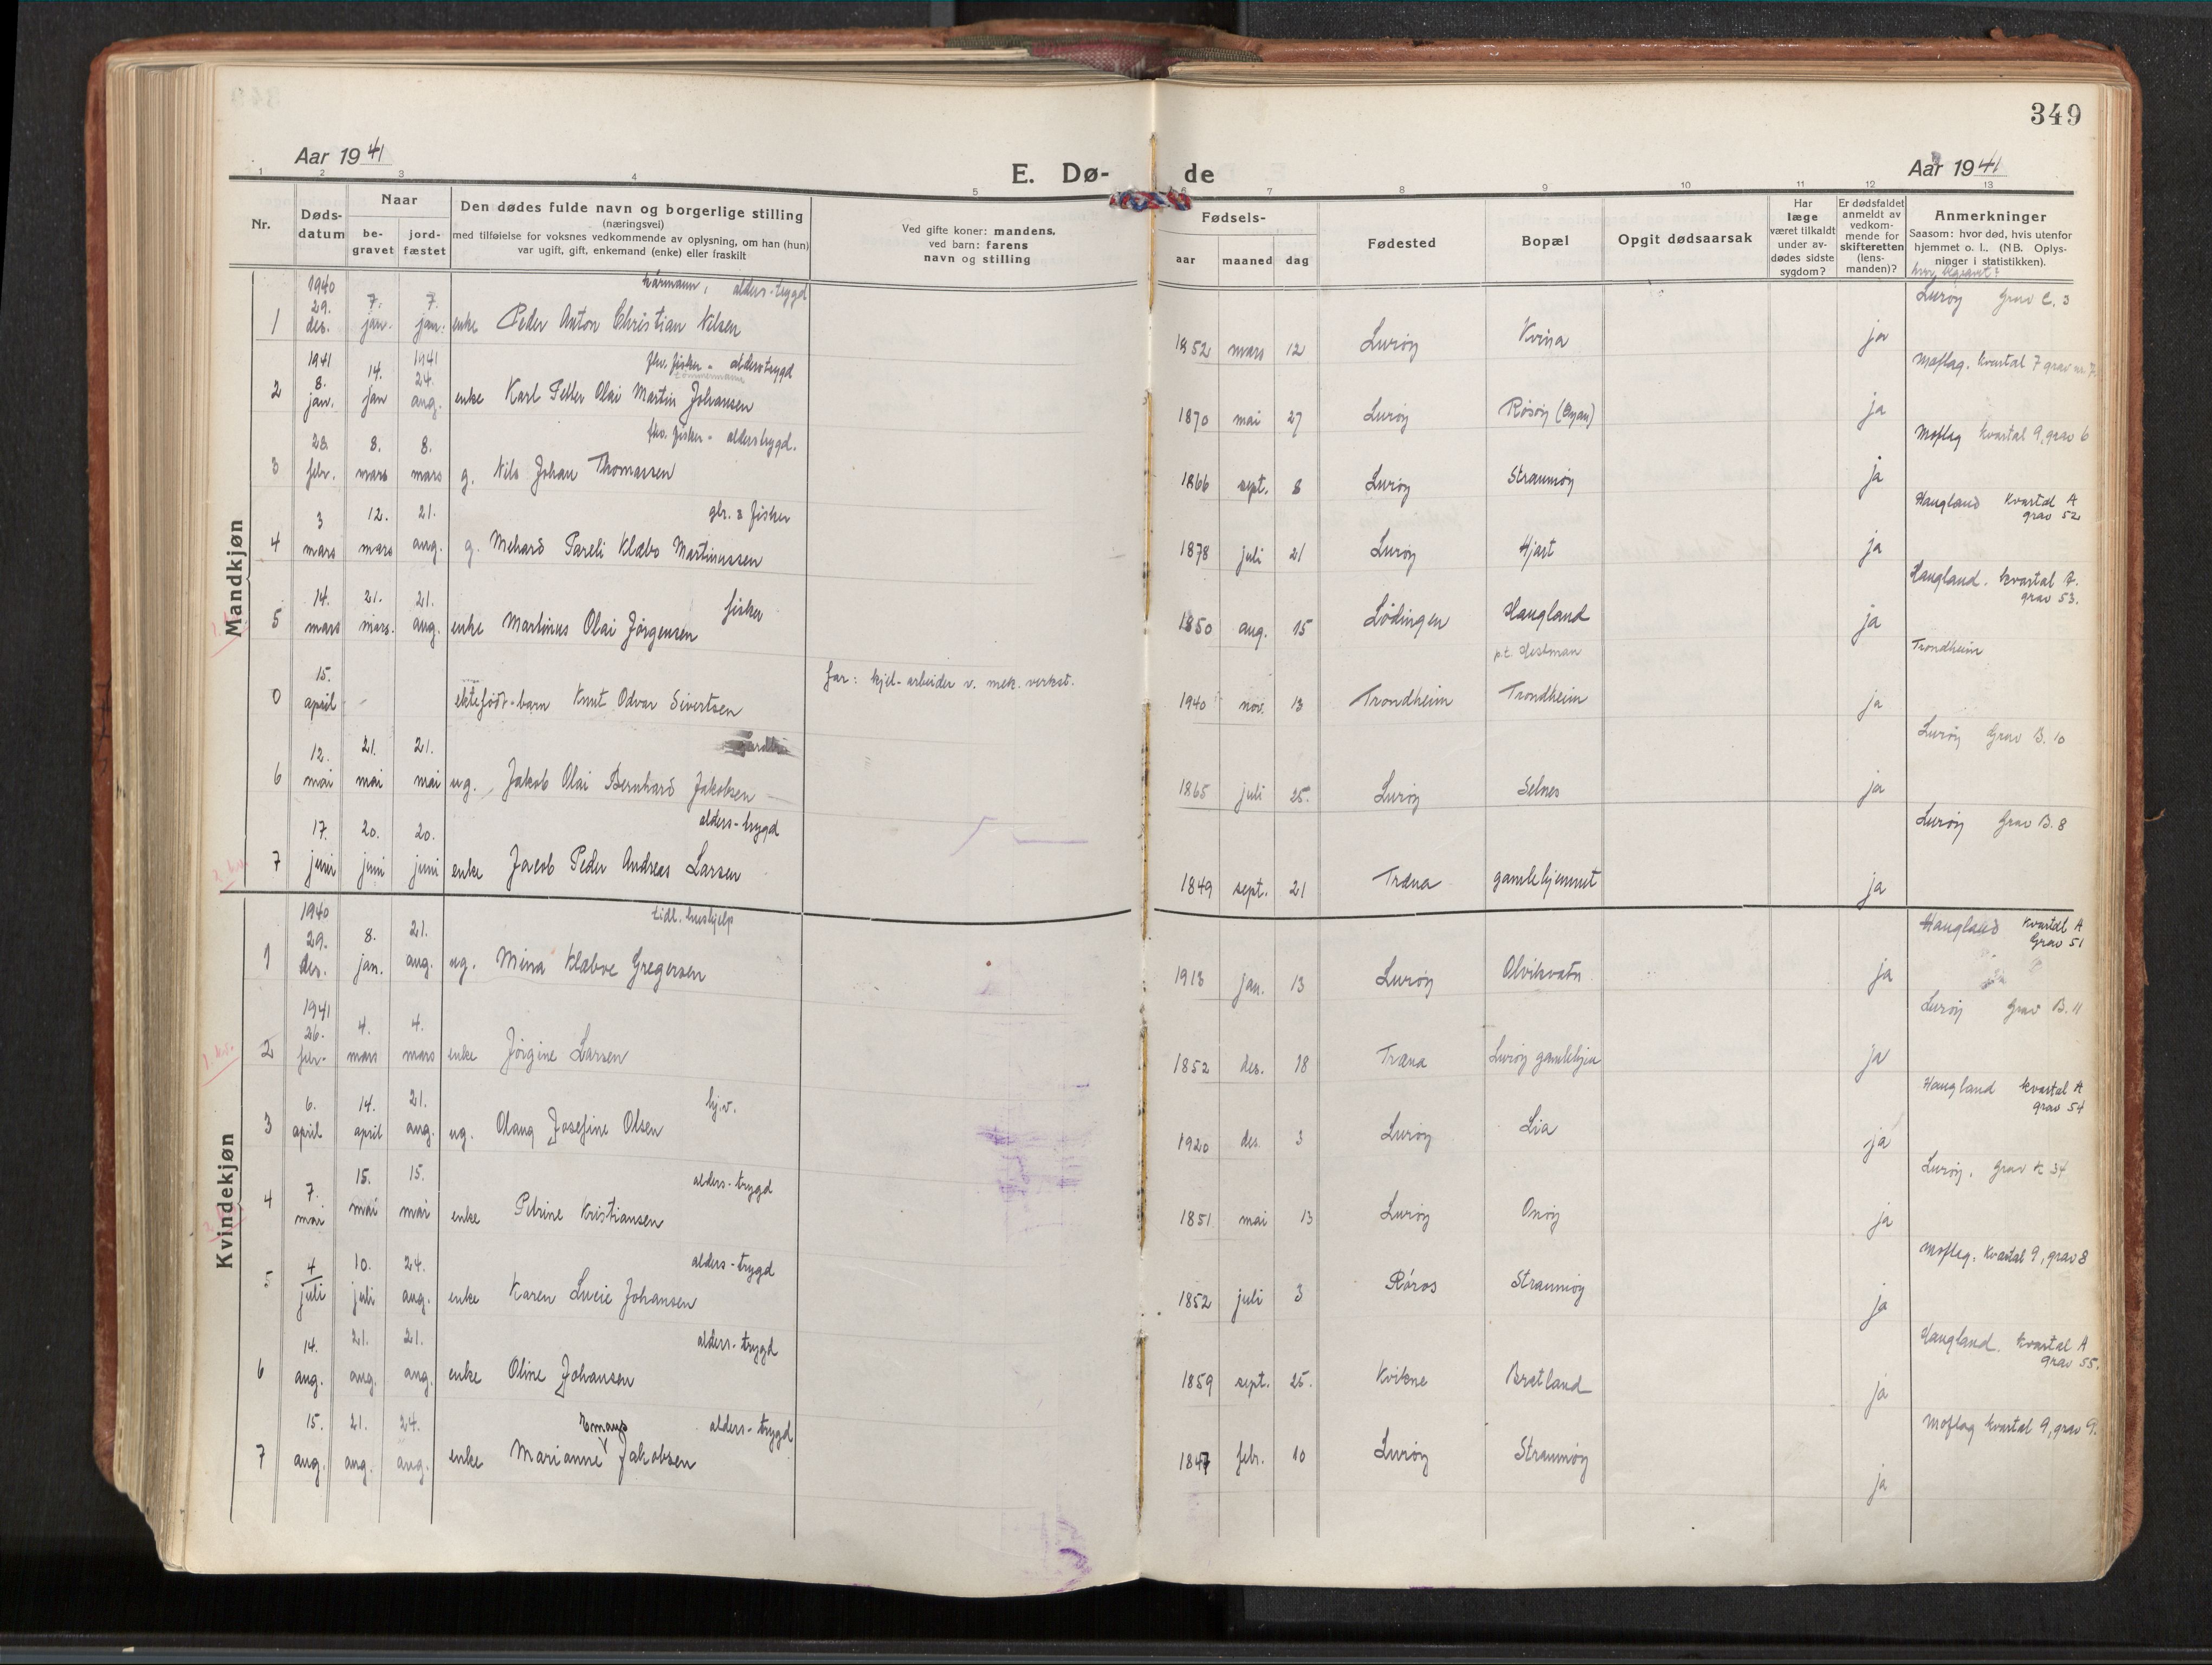 349
Aar 1941
E. Dø-
de
Aar 1941
1 2 3 4 5 6 7 8 9 10 11 12 13
Nr.
Døds-
datum
Naar
be-
gravet
jord-
fæstet
Den dødes fulde navn og borgerlige stilling
(næringsvei)
med tilføielse for voksnes vedkommende av oplysning, om han (hun)
var ugift, gift, enkemand (enke) eller fraskilt
Ved gifte koner: mandens,
ved barn: farens
navn og stilling
Fødsels-
aar maaned dag
Fødested
Bopæl
Opgit dødsaarsak
Har
læge
været tilkaldt
under av-
dødes sidste
sygdom?
Er dødsfaldet
anmeldt av
vedkom-
mende for
skifteretten
(lens-
manden)?
Anmerkninger
Saasom: hvor død, hvis utenfor
hjemmet o. l.. (NB. Oplys-
ninger i statistikken).
hvor begravet?
Mandkjøn
kårmann, alders-trygd
1 1940 29. des. 7. jan. 7. jan. enke Peder Anton Christian Nilsen 1852 mars 12 Lurøy Kvina ja Lurøy Grav C. 3
fhv. fisker - alderstrygd
tømmermann
2 1941 8. jan. 14. jan 1941 24. aug. enke Karl Petter Olai Martin Johansen 1870 mai 27 Lurøy Røsøy (Øyan) ja Moflag. kvartal 7 grav nr. 7.
fhv. fisker - alderstrygd.
3 28. febr. 8. mars 8. mars g. Nils Johan Thomassen 1866 sept. 8 Lurøy Straumøy ja Moflag kvartal 9, grav 6
gbr. & fisker
4 3 mars 12. mars 21. aug. g. Mehard Pareli Klæbo Martinussen 1878 juli 21 Lurøy Hjart ja Haugland kvartal A
grav 52
fisker
5 14. mars 21. mars. 21. aug. enke Martinus Olai Jörgensen 1850 aug. 15 Lødingen Haugland ja Haugland. kvartal A.
grav 53.
0 15. april ektefødt-barn Knut Odvar Sivertsen far: kjel-arbeider v. mek. verkst. 1940 nov. 13 Trondheim p.t. Hestman
Trondheim ja Trondheim
6 12. mai 21. mai 21. mai ug. Jakob Olai Bernhard Jakobsen 1865 juli 25. Lurøy Selnes ja Lurøy Grav B. 10
alders-trygd
7 17. juni 20. juni 20. juni enke Jacob Peder Andreas Larsen 1849 sept. 21 Træna gamlehjemmet ja Lurøy Grav B. 8
Kvindekjøn
tidl. hushjelp
1 1940 29. des. 8. jan. 21. aug. ug. Mina Klæboe Gregersen 1913 jan. 13 Lurøy Olvikvatn ja Haugland kvartal A
Grav 51
2 1941 26. febr. 4. mars 4. mars enke Jörgine Larsen 1852 des. 18 Træna Lurøy gamlehjem ja Lurøy Grav B. 11
1. kv.
hj.v.
3 6. april 14. april 21. aug. ug. Olaug Josefine Olsen 1920 des. 3 Lurøy Lia ja Haugland kvartal A
grav 54
alders-trygd
4 7. mai 15. mai 15. mai enke Petrine Kristiansen 1851 mai 13 Lurøy Onøy ja Lurøy. Grav K 34
alders-trygd
5 4 juli 10. juli 24. aug. enke Karen Lucie Johansen 1852 juli 3 Röros Straumøy ja Moflag. kvartal 9, grav 8
alders-trygd
6 14. aug. 21. aug. 21. aug. enke Oline Johansen 1859 sept. 25. Kvikne Bratland ja Haugland. kvartal A
grav 55.
Emaus alders-trygd
7 15. aug. 21. aug. 24. aug. enke Marianne Jakobsen 1847 febr. 10 Lurøy Straumøy ja Moflag kvartal 9, grav 9.